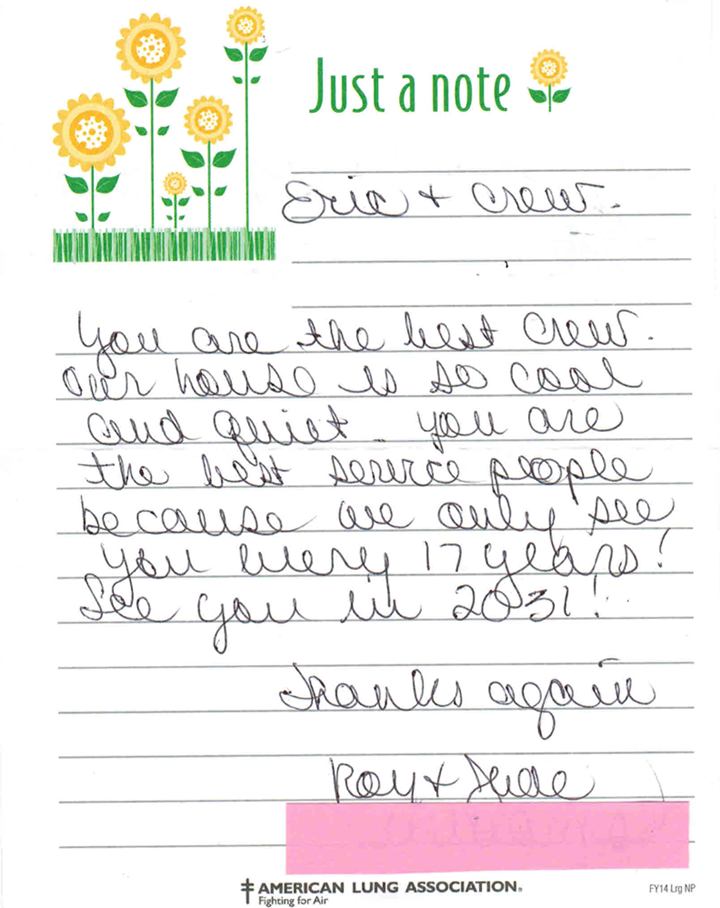 Just a note
Eric + Crew.
You are the best crew.
our house is so cool
and quiet. you are
the best service people
because we only see
you every 17 years!
See you in 2031!
Thanks again
Roy + Jude
AMERICAN LUNG ASSOCIATION®
Fighting for Air
FY14 Lrg NP